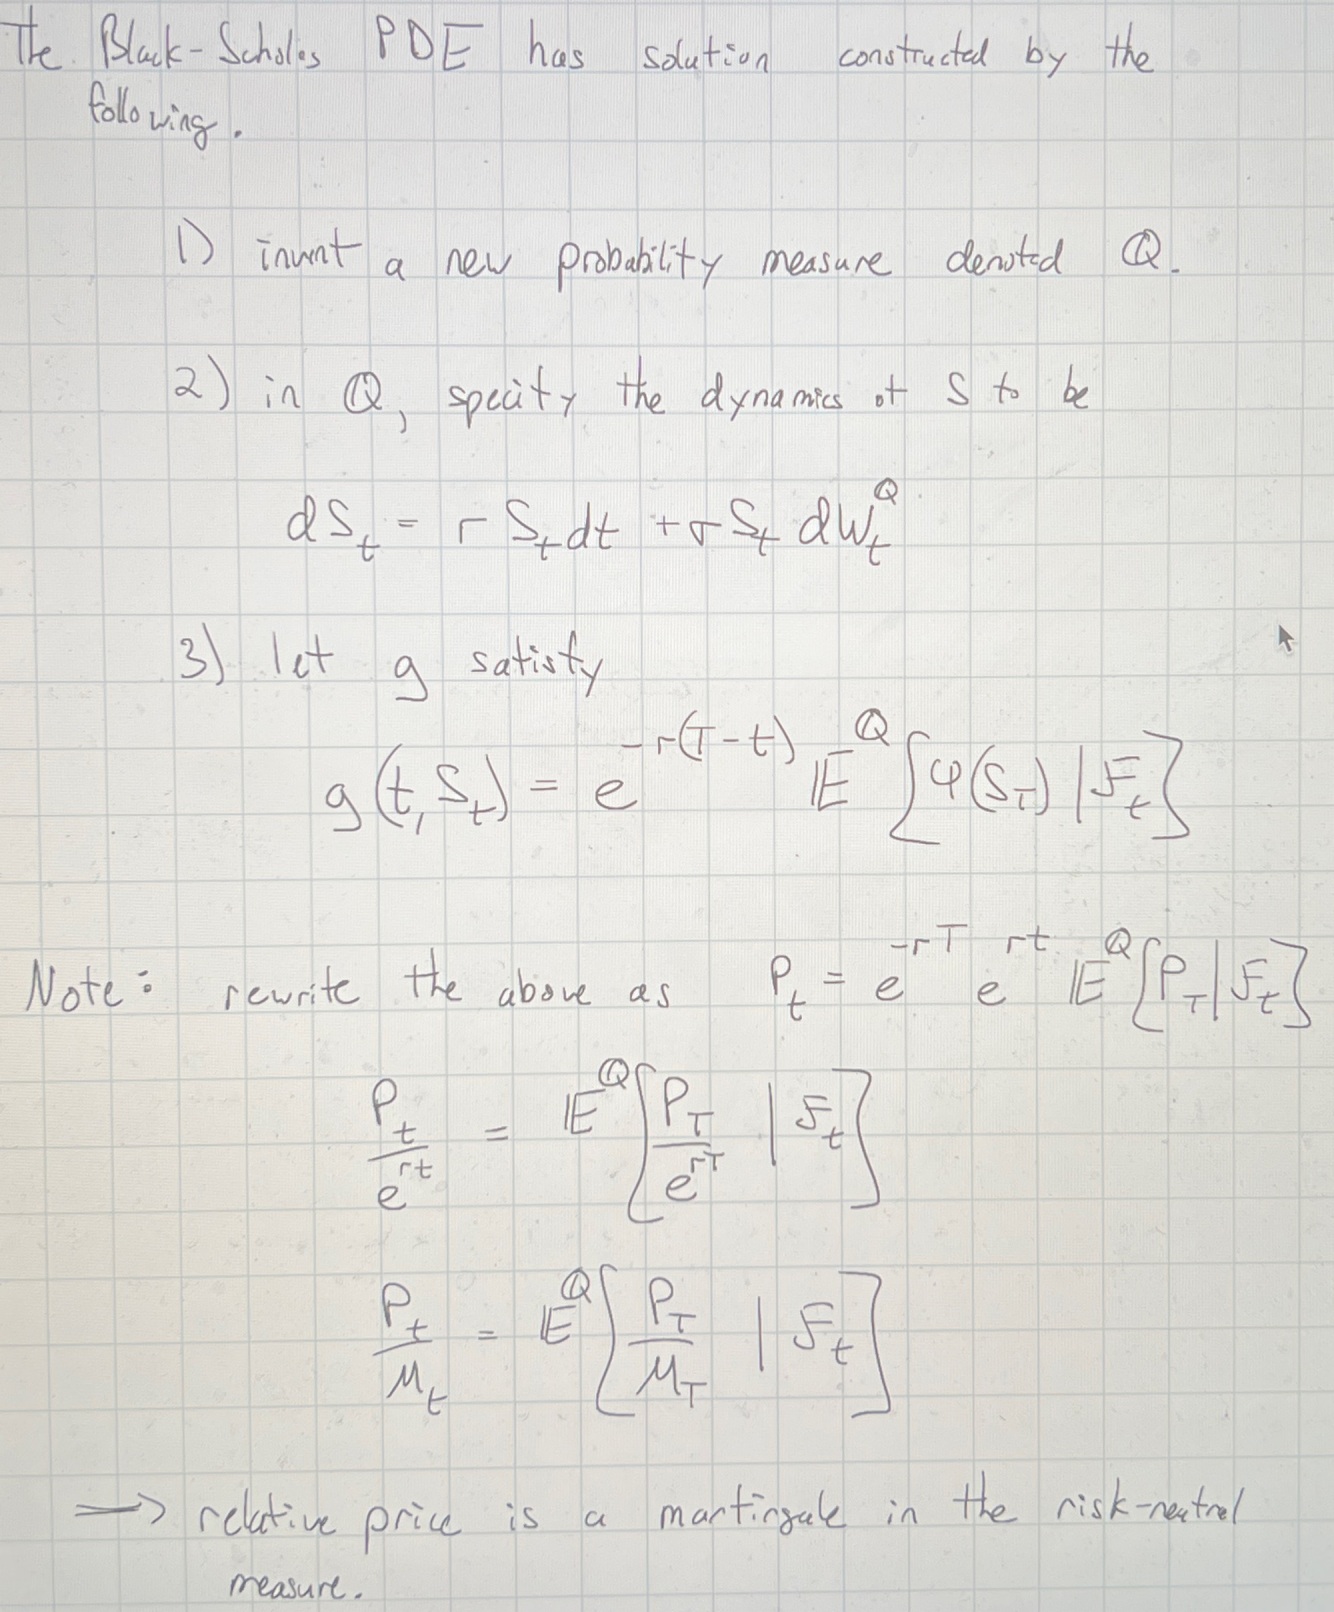 The Black-Scholes PDE has solution constructed by the
following.
1) invent a new probability measure denoted ℚ.
2) in ℚ, specify the dynamics of S to be
dS_t = r S_t dt + σ S_t dW_t^ℚ
3) let g satisfy
g(t, S_t) = e^{-r(T-t)} 𝔼^ℚ [φ(S_T) | ℱ_t]
Note: rewrite the above as P_t = e^{-rT} e^{rt} 𝔼^ℚ [P_T | ℱ_t]
P_t / e^{rt} = 𝔼^ℚ [P_T / e^{rT} | ℱ_t]
P_t / M_t = 𝔼^ℚ [P_T / M_T | ℱ_t]
⟹ relative price is a martingale in the risk-neutral
measure.